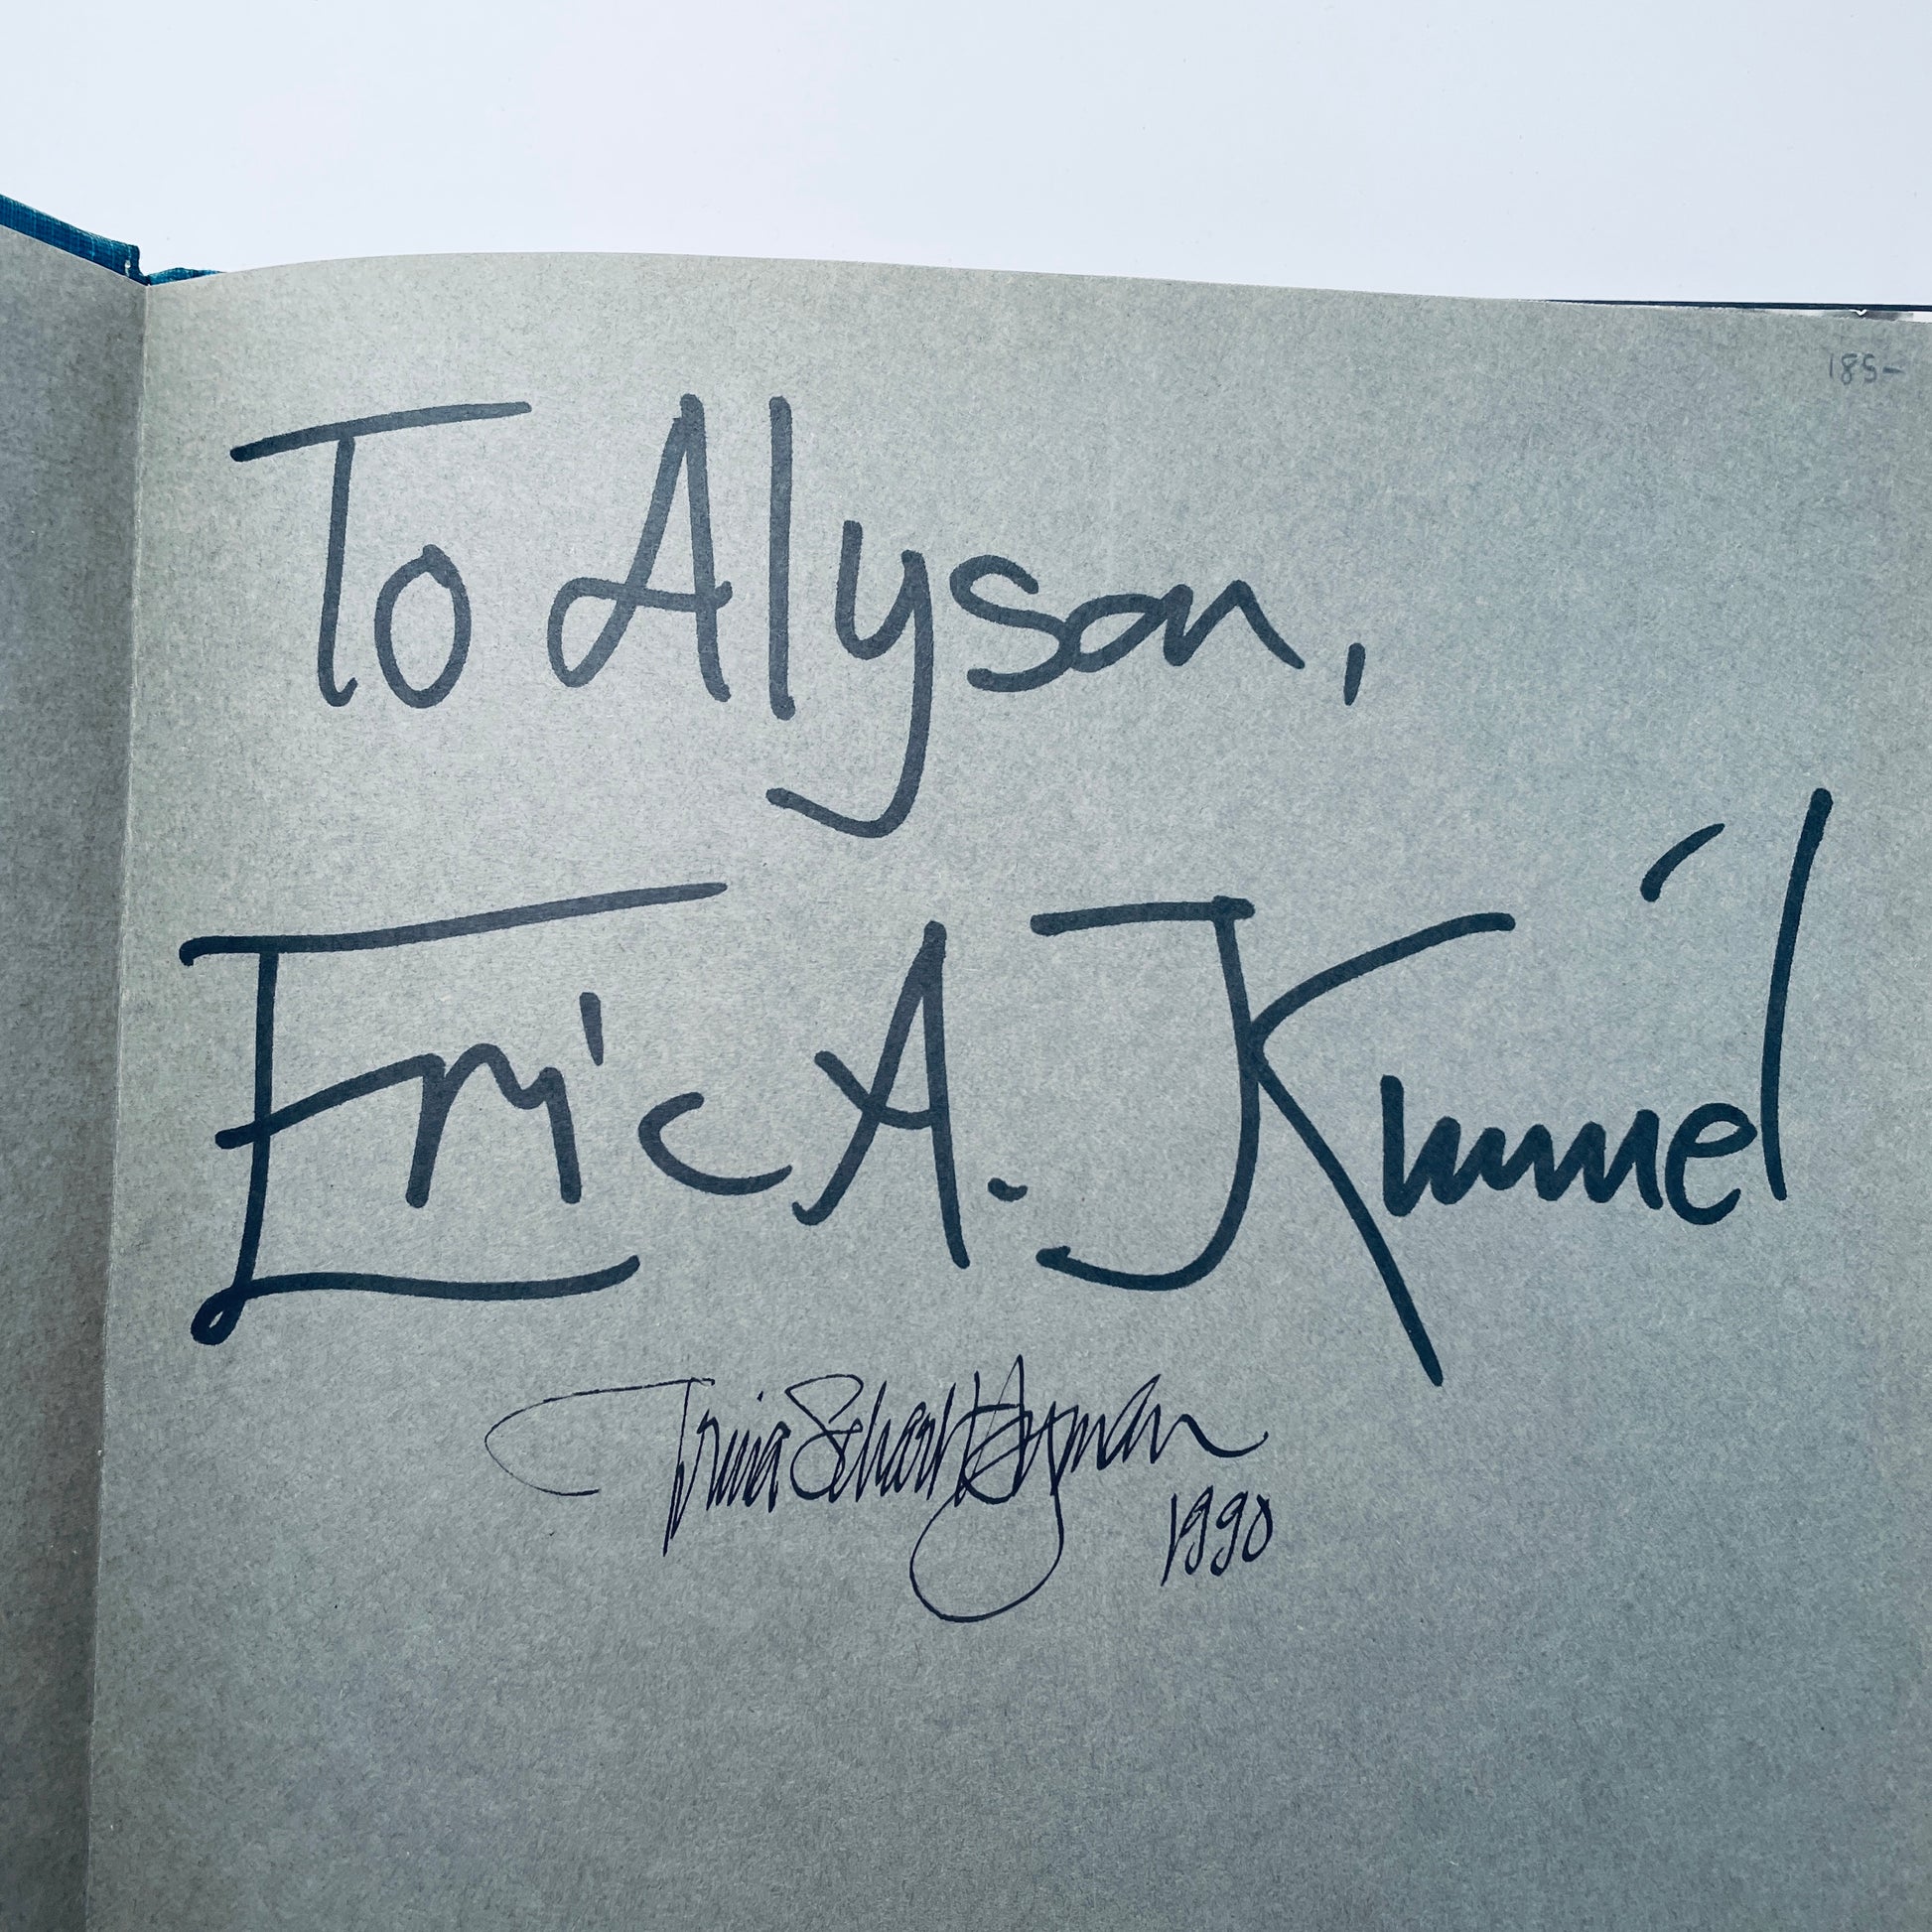 185-
To Alyson,
Eric A. Kimmel
Trina Schart Hyman
1990